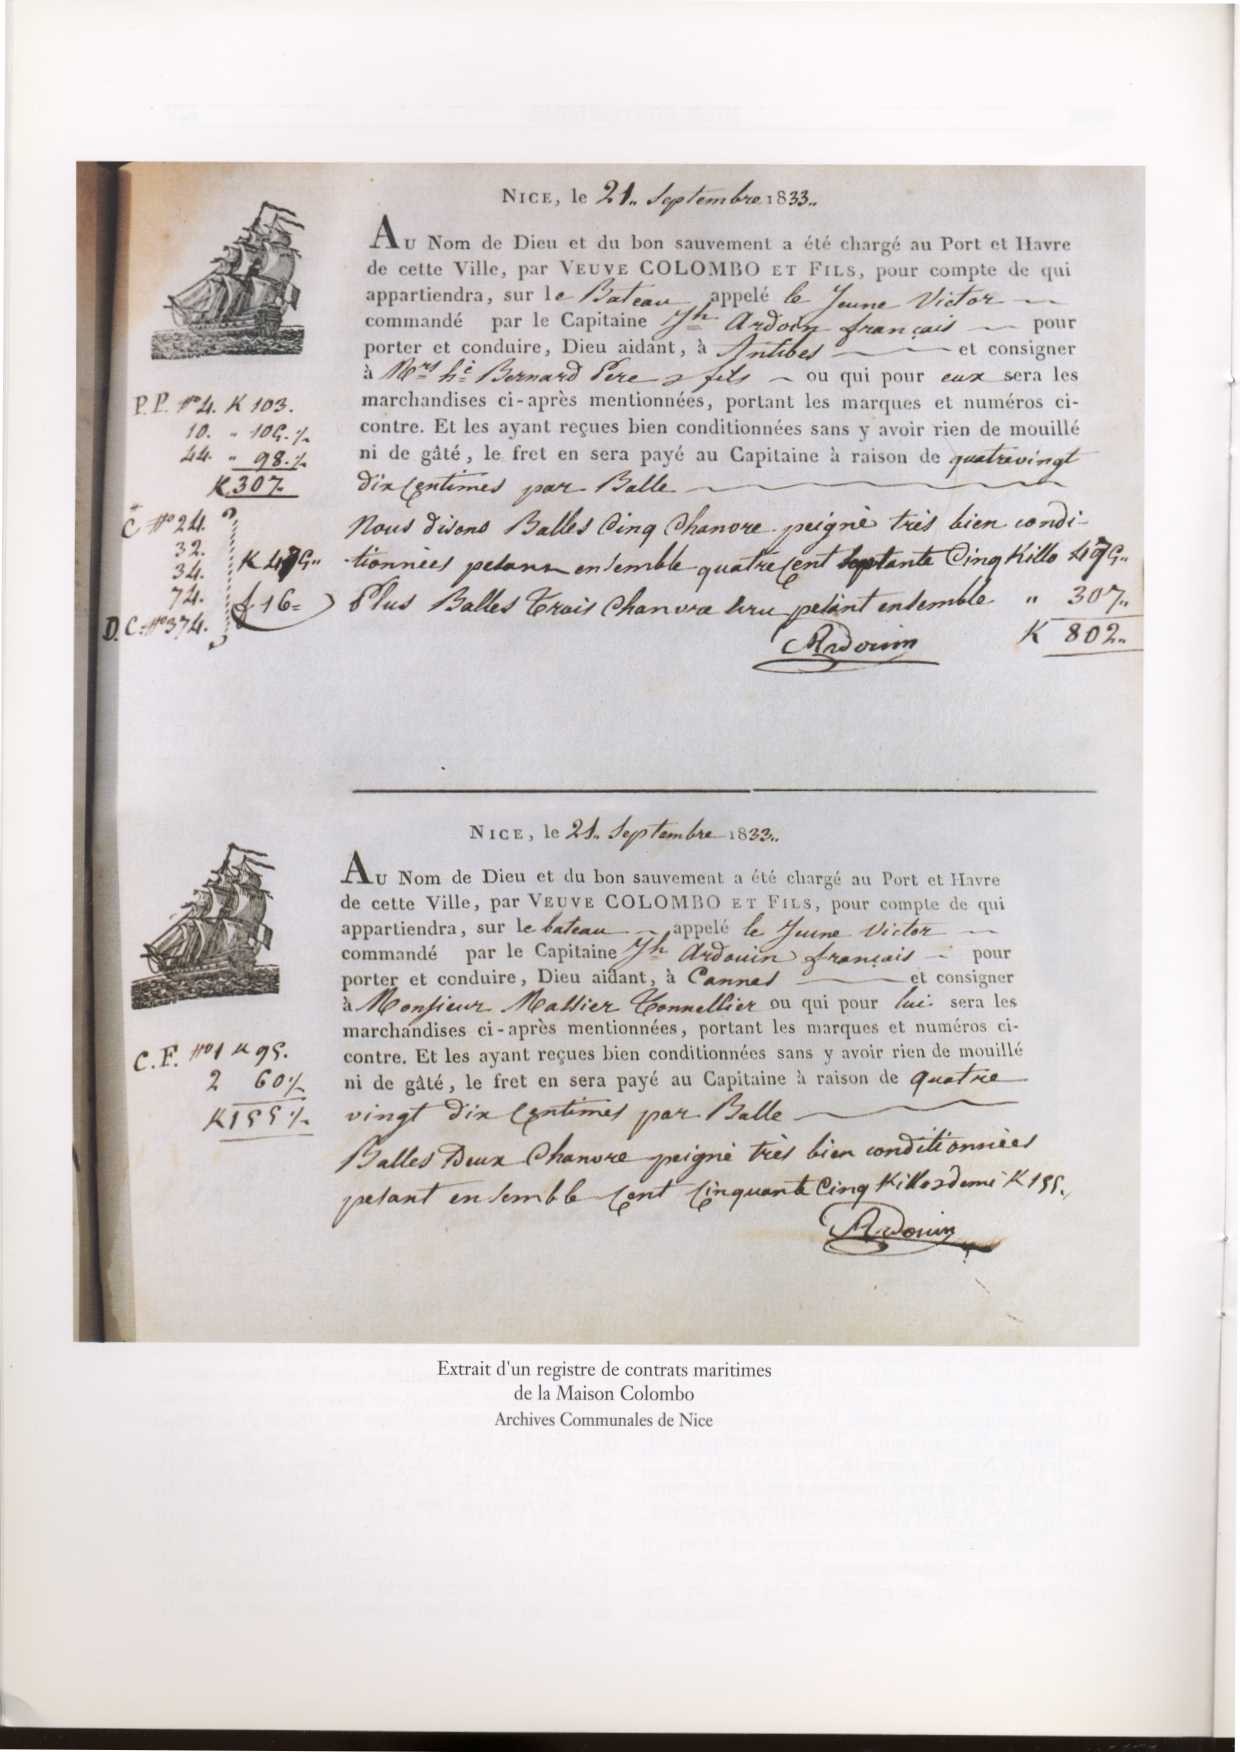 NICE, le 21.. Septembre 1833..
AU Nom de Dieu et du bon sauvement a été chargé au Port et Havre
de cette Ville, par VEUVE COLOMBO ET FILS, pour compte de qui
appartiendra, sur le Bateau appelé le Jeune Victor
commandé par le Capitaine Jh Ardoin français pour
porter et conduire, Dieu aidant, à Antibes et consigner
à Mrs Bernard Père & fils ou qui pour eux sera les
marchandises ci-après mentionnées, portant les marques et numéros ci-
contre. Et les ayant reçues bien conditionnées sans y avoir rien de mouillé
ni de gâté, le fret en sera payé au Capitaine à raison de quatrevingt
dix Centimes par Balle
P.P. N° 4. K 103.
10. " 105.½
44. " 98.½
K 307
C. N° 24.
32.
34. K 495..
74. f 16=
D.C. N° 374.
Nous disons Balles Cinq Chanvre peigné très bien condi-
tionnées pesant ensemble quatre Cent septante Cinq Killo 495..
Plus Balles Trois Chanvre bru pesant ensemble " 307..
K 802..
Ardouin
NICE, le 21.. Septembre 1833..
AU Nom de Dieu et du bon sauvement a été chargé au Port et Havre
de cette Ville, par VEUVE COLOMBO ET FILS, pour compte de qui
appartiendra, sur le bateau appelé le Jeune Victor
commandé par le Capitaine Jh Ardouin français pour
porter et conduire, Dieu aidant, à Cannes et consigner
à Monsieur Massier Tonnellier ou qui pour lui sera les
marchandises ci-après mentionnées, portant les marques et numéros ci-
contre. Et les ayant reçues bien conditionnées sans y avoir rien de mouillé
ni de gâté, le fret en sera payé au Capitaine à raison de quatre
vingt dix Centimes par Balle
C.F. N° 1 K 95.
2 60½
K 155½
Balles Deux Chanvre peigné très bien conditionnées
pesant ensemble Cent Cinquante Cinq Killo & demi K 155.
Ardouin
Extrait d'un registre de contrats maritimes
de la Maison Colombo
Archives Communales de Nice